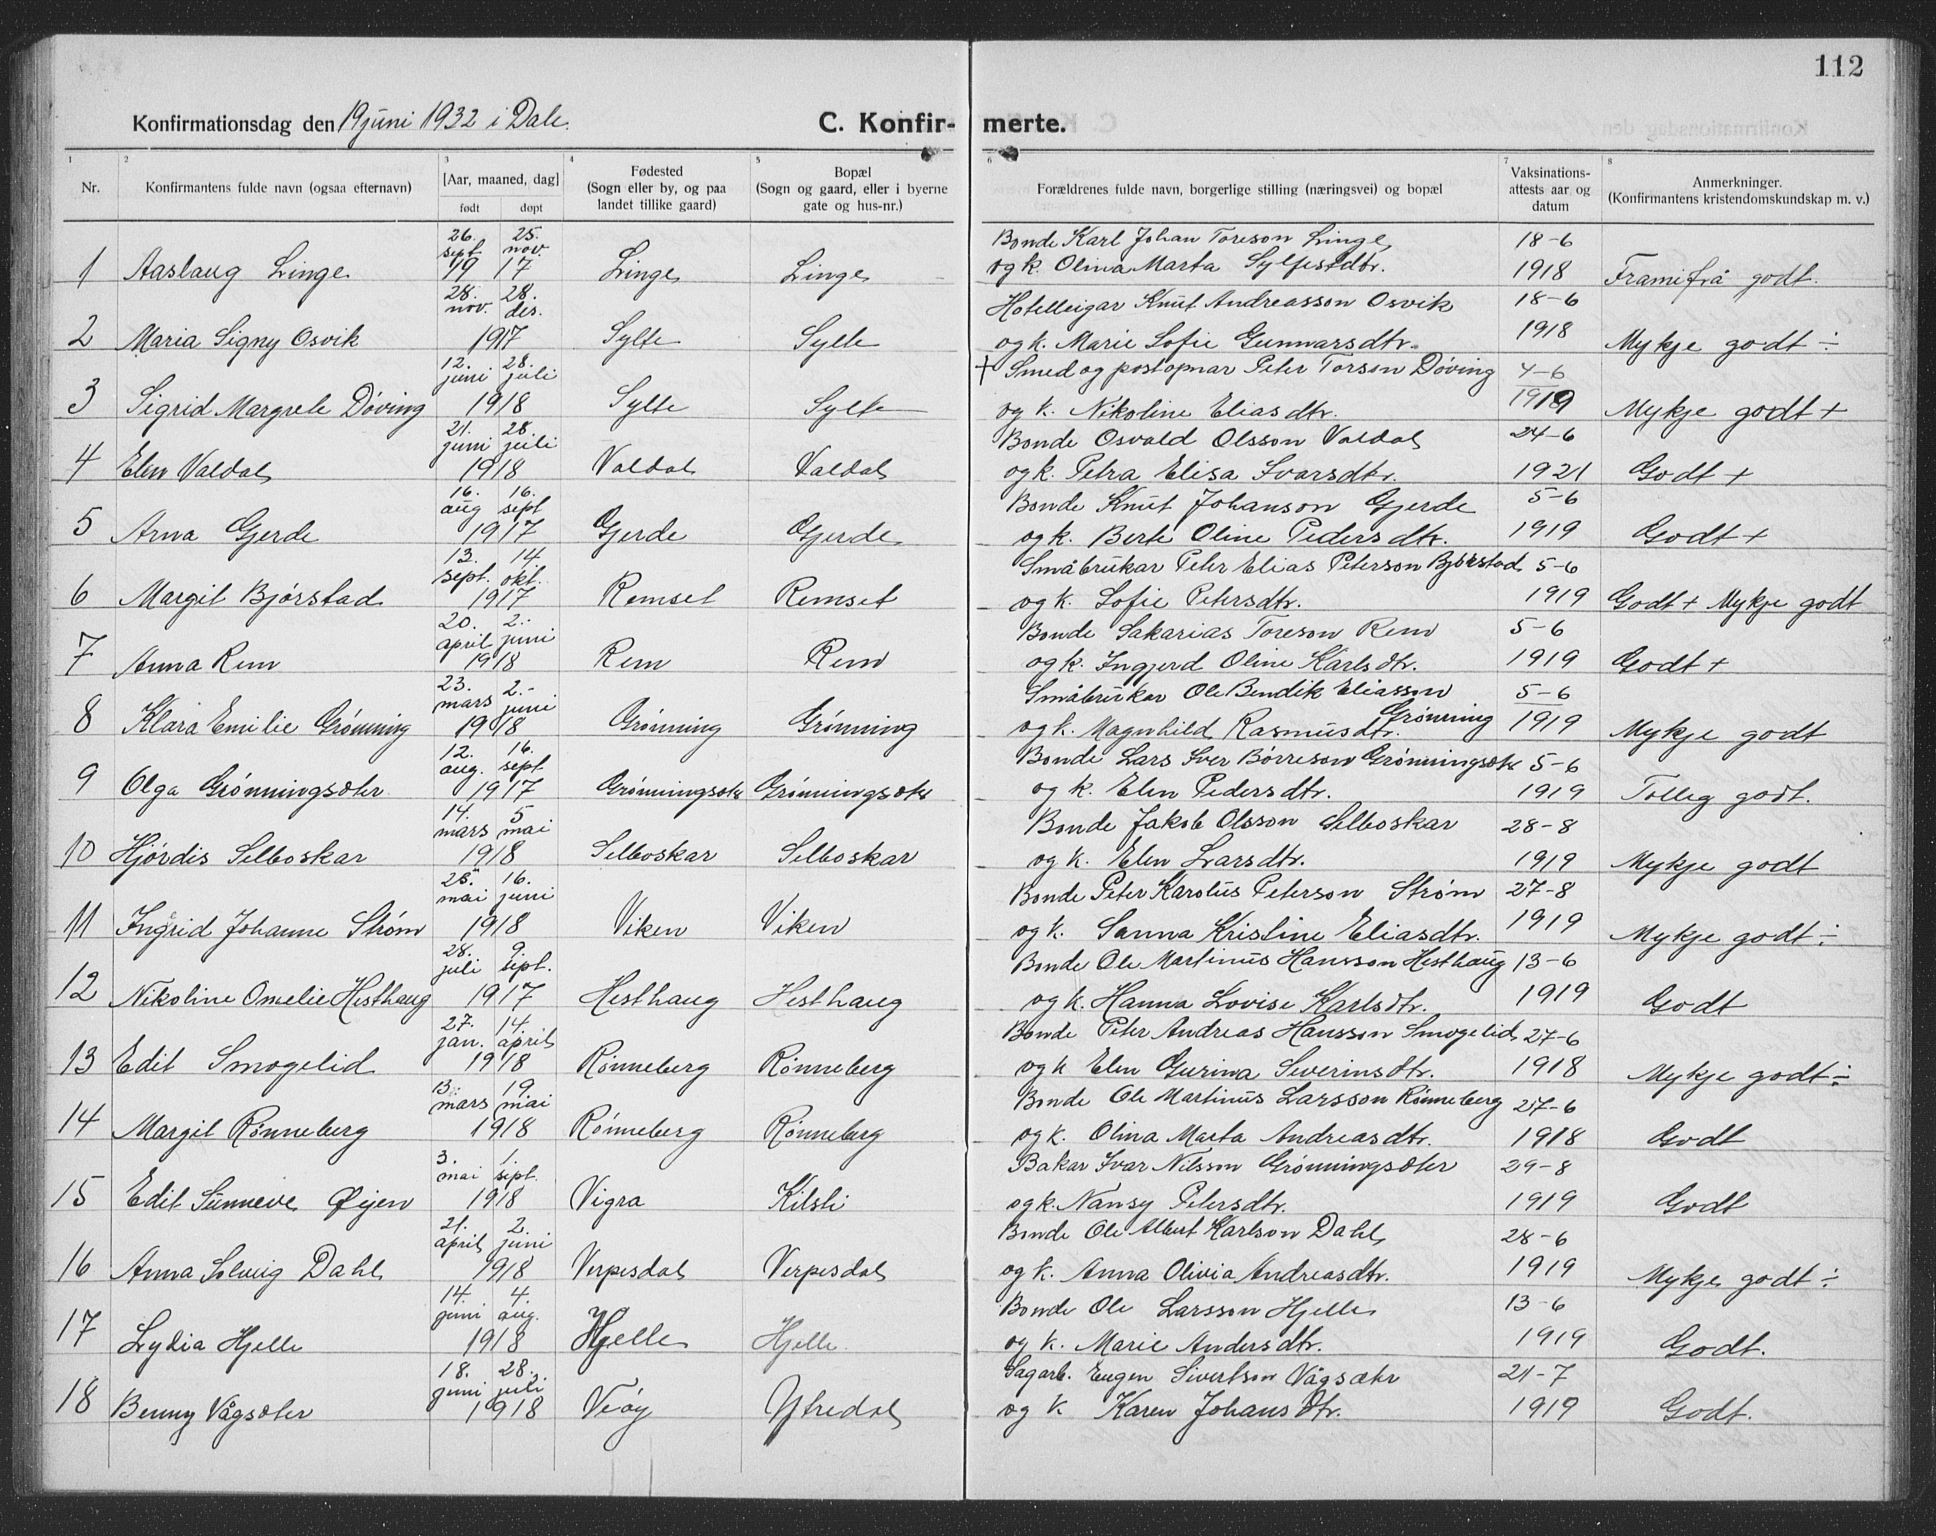 112
Konfirmationsdag den 19 juni 1932 i Dale. C. Konfir- merte.
1 2 3 4 5 6 7 8
Nr. Konfirmantens fulde navn (ogsaa efternavn) [Aar, maaned, dag] født døpt Fødested (Sogn eller by, og paa landet tillike gaard) Bopæl (Sogn og gaard, eller i byerne gate og hus-nr.) Forældrenes fulde navn, borgerlige stilling (næringsvei) og bopæl Vaksinations-attests aar og datum Anmerkninger. (Konfirmantens kristendomskundskap m. v.)
26. sept. 25. nov. Bonde Karl Johan Toreson Linge 18-6
1 Aaslaug Linge 1917 Linge Linge og k. Olina Marta Sylfestdtr. 1918 Framifrå godt.
28. nov. 28. des. Hotelleigar Knut Andreasson Osvik 18-6
2 Maria Signy Osvik 1917 Sylte Sylte og k. Marie Sofie Gunnarsdtr. 1918 Mykje godt ÷
12. juni 28. juli + Smed og postopnar Peter Torson Døving 4-6
3 Sigrid Margrete Døving 1918 Sylte Sylte og k. Nikoline Eliasdtr. 1919 Mykje godt +
21. juni 28. juli Bonde Osvald Olsson Valdal 24-6
4 Elen Valdal 1918 Valdal Valdal og k. Petra Elisa Ivarsdtr. 1921 Godt +
16. aug 16. sept Bonde Knut Johanson Gjerde 5-6
5 Arna Gjerde 1917 Gjerde Gjerde og k. Berte Oline Pedersdtr. 1919 Godt +
13. sept. 14. okt. Småbrukar Peter Elias Peterson Bjørstad 5-6
6 Margit Bjørstad 1917 Remset Remset og k. Sofie Petersdtr. 1919 Godt + Mykje godt
20. april 2. juni Bonde Sakarias Toreson Rem 5-6
7 Anna Rem 1918 Rem Rem og k. Ingjerd Oline Karlsdtr. 1919 Godt +
23. mars 2. juni Småbrukar Ole Bendik Eliasson 5-6
8 Klara Emilie Grønning 1918 Grønning Grønning og k. Magnhild Rasmusdtr. Grønning 1919 Mykje godt
12. aug. 16. sept. Bonde Lars Iver Børreson Grønningsæter 5-6
9 Olga Grønningsæter 1917 Grønningsæter Grønningsæter og k. Elen Pedersdtr. 1919 Tolleg godt.
14. mars 5 mai Bonde Jakob Olsson Selboskar 28-8
10 Hjørdis Selboskar 1918 Selboskar Selboskar og k. Elen Larsdtr. 1919 Mykje godt
mai 16. juni Bonde Peter Karolus Peterson Strøm 27-8
11 Ingrid Johanne Strøm 1918 Viken Viken og k. Sanna Kristine Eliasdtr. 1919 Mykje godt ÷
28. juli 9. sept. Bonde Ole Martinus Hansson Hesthaug 13-6
12 Nikoline Omelie Hesthaug 1917 Hesthaug Hesthaug og k. Hanna Lovise Karlsdtr. 1919 Godt
27. jan. 14. april Bonde Peter Andreas Hansson Smogelid 27-6
13 Edit Smogelid 1918 Rønneberg Rønneberg og k Elen Gurina Severinsdtr. 1918 Mykje godt ÷
13. mars 19. mai Bonde Ole Martinus Larsson Rønneberg 27-6
14 Margit Rønneberg 1918 Rønneberg Rønneberg og k. Olina Marta Andreasdtr. 1918 Godt
3. mai 1. sept. Bakar Ivar Nilsson Grønningsæter 29-8
15 Edit Sunneve Øijen 1918 Vigra Kilsti og k. Nansy Petersdtr. 1919 Godt
21. april 2. juni Bonde Ole Albert Karlson Dahl 28-6
16 Anna Solveig Dahl 1918 Verpesdal Verpesdal og k. Anna Olivia Andreasdtr. 1919 Mykje godt ÷
14. juni 4. aug. Bonde Ole Larsson Hjelle 13-6
17 Lydia Hjelle 1918 Hjelle Hjelle og k. Marie Andersdtr. 1919 Godt.
18. juni 28. juli Sagarb. Eugen Sivertson Vågsæter 21-7
18 Benny Vågsæter 1918 Veøy Ytredal og k Karen Johansdtr. 1919 Godt.